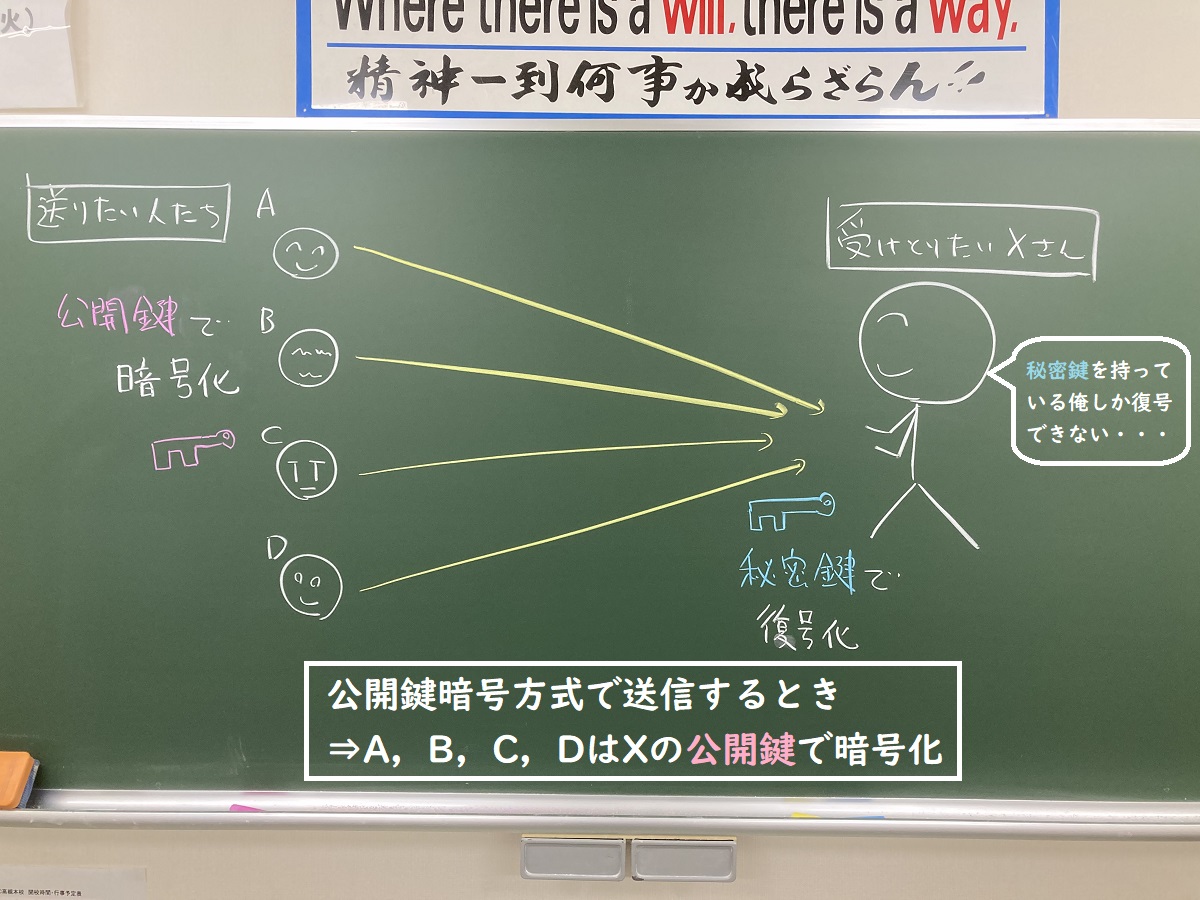 火）
Where there is a will, there is a way.
精神一到何事か成らざらん
送りたい人たち
A
受けとりたいXさん
公開鍵で
暗号化
B
秘密鍵を持って
いる俺しか復号
できない・・・
C
D
秘密鍵で
復号化
公開鍵暗号方式で送信するとき
⇒A，B，C，DはXの公開鍵で暗号化
高槻本校 開校時間・行事予定書